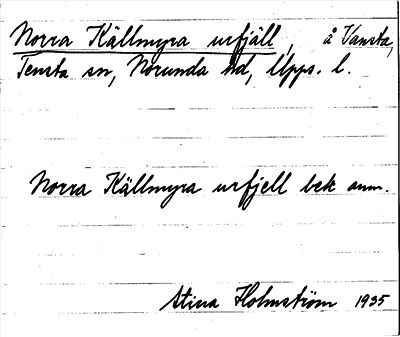 Norra Källmyra urfjäll, å Vansta,
Tensta sn, Norunda hd, Upps. l.
Norra Källmyra urfjell bek ann.
Stina Holmström 1935